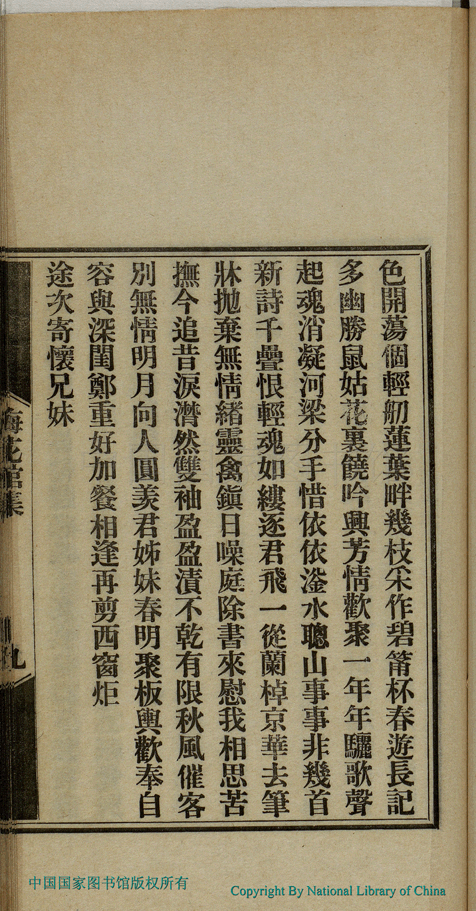 色開蕩個輕舠蓮葉畔幾枝采作碧筩杯春遊長記
多幽勝鼠姑花裏饒吟興芳情歡聚一年年驪歌聲
起魂消凝河梁分手惜依依滏水聰山事事非幾首
新詩千疊恨輕魂如縷逐君飛一從蘭棹京華去筆
牀拋棄無情緒靈禽鎭日噪庭除書來慰我相思苦
撫今追昔淚潸然雙袖盈盈漬不乾有限秋風催客
別無情明月向人圓羨君姊妹春明聚板輿歡奉自
容與深閨鄭重好加餐相逢再剪西窗炬
途次寄懷兄妹
花館集
九
中国国家图书馆版权所有
Copyright By National Library of China